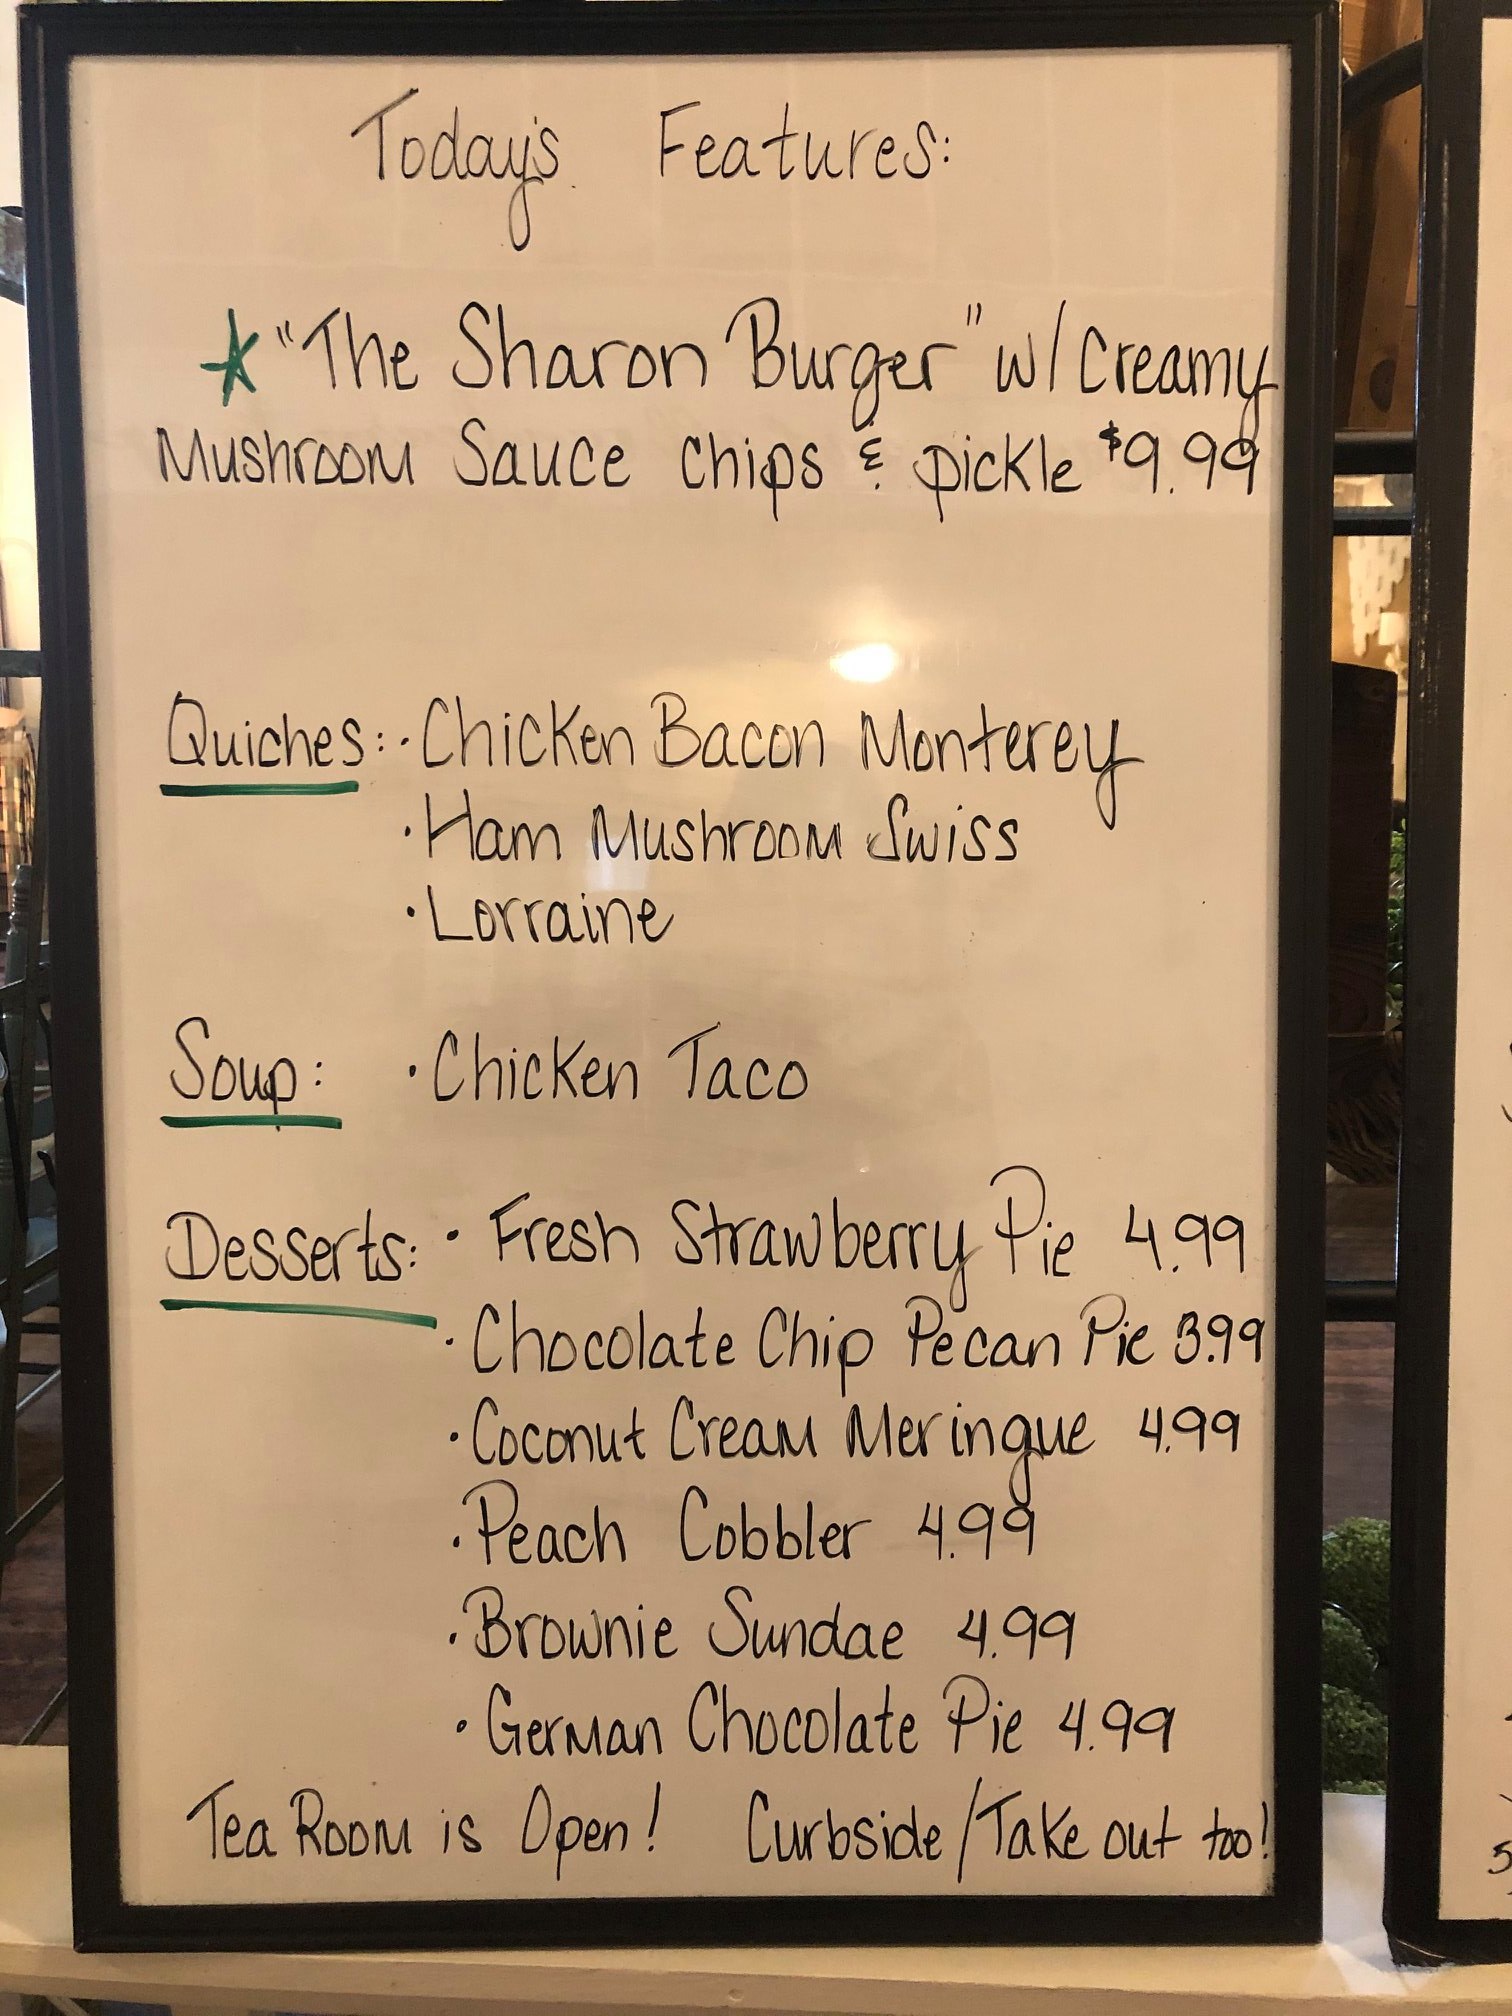 Today's Features:
"The Sharon Burger" w/ Creamy
Mushroom Sauce chips & pickle $9.99
Quiches: · Chicken Bacon Monterey
· Ham Mushroom Swiss
· Lorraine
Soup: · Chicken Taco
Desserts: · Fresh Strawberry Pie 4.99
· Chocolate Chip Pecan Pie 3.99
· Coconut Cream Meringue 4.99
· Peach Cobbler 4.99
· Brownie Sundae 4.99
· German Chocolate Pie 4.99
Tea Room is Open! Curbside/Take out too!